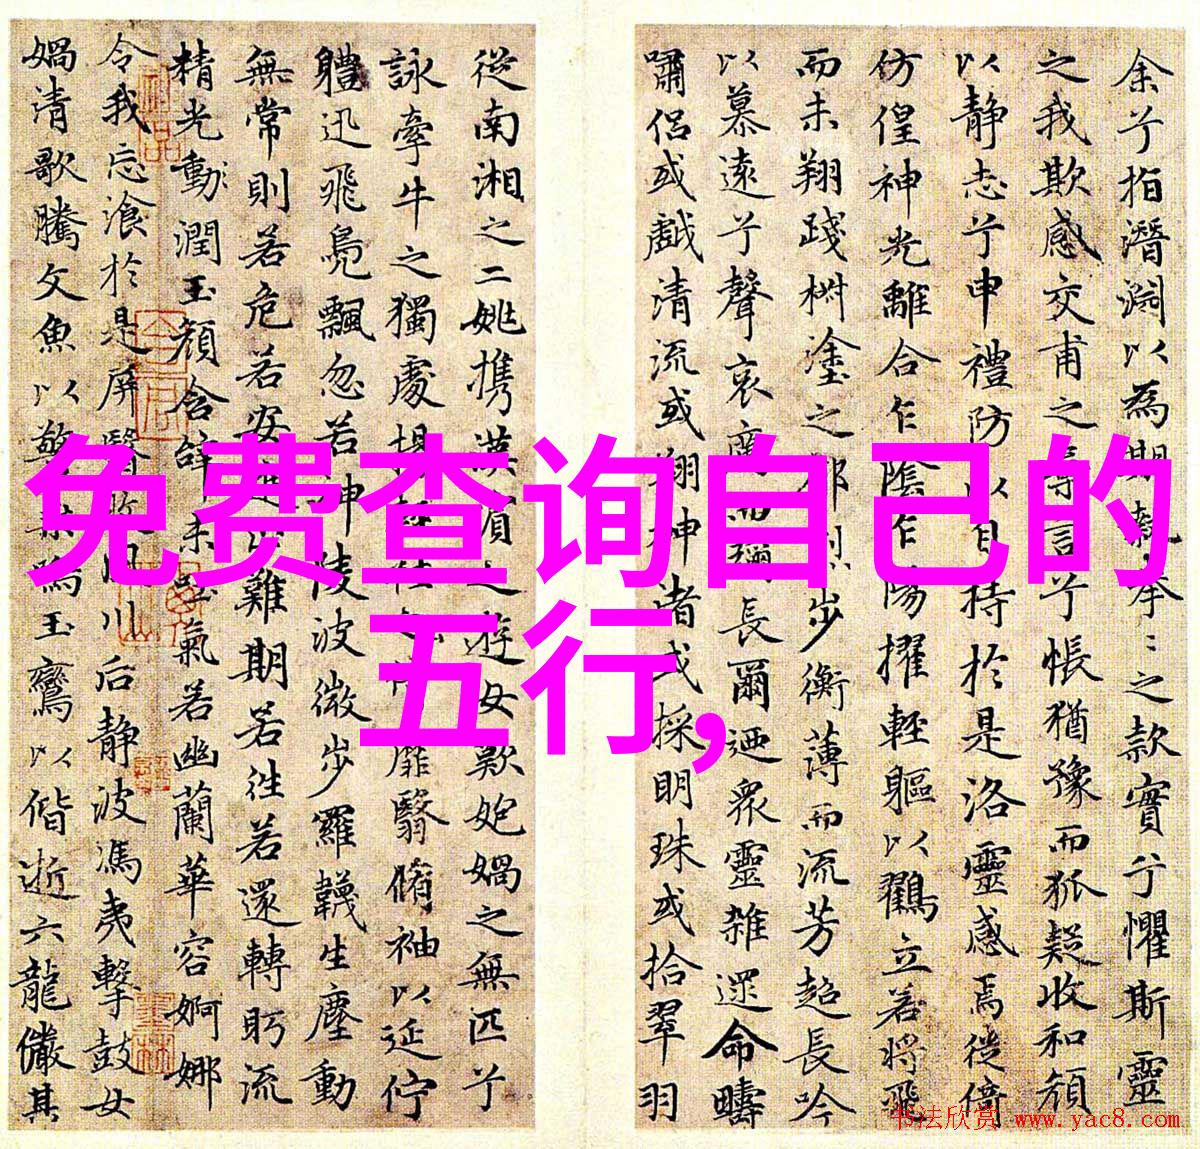 免费查询自己的
五行,
余兮指潛淵以為期執拳〻之款實兮懼斯靈
之我欺感交甫之棄言兮悵猶豫而狐疑收和顏
以静志兮申禮防以自持於是洛靈感焉徙倚
仿偟神光離合乍陰乍陽擢輕軀以鶴立若將飛
而未翔踐椒塗之郁烈步衡薄而流芳超長吟
以慕遠兮聲哀厲而彌長爾迺眾靈雜遝命疇
嘯侶或戲清流或翔神渚或採明珠或拾翠羽
從南湘之二姚攜漢濱之遊女歎匏媧之無匹兮
詠牽牛之獨處揚輕袿之猗靡翳脩袖以延佇
體迅飛鳧飄忽若神陵波微步羅韈生塵動
無常則若危若安進止難期若往若還轉眄流
精光動潤玉顏含辭未吐氣若幽蘭華容婀娜
令我忘飡於是屏翳收風川后静波馮夷擊鼓女
媧清歌騰文魚以警乘鳴玉鸞以偕逝六龍儼其
书法欣赏 www.yac8.com